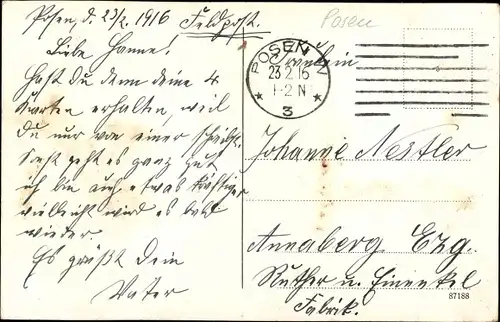 Posen, d. 23/2. 1916 Feldpost.
Liebe Hanne!
Hast Du denn deine 4
Karten erhalten, weil
Du nur von einer schreibst.
Sonst geht es ganz gut
ich bin auch etwas kräftiger
vielleicht wird es bald
wieder.
Es grüßt Dein
Vater
Posen
POSEN
23.2.16
1-2 N
* 3 *
Fräulein
Johanne Nestler
Annaberg Erzg.
Fabrik.
87188